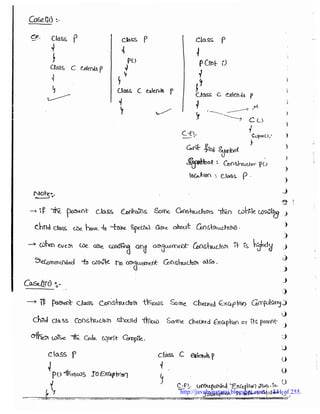 Case(ii) :-
Eg. class P        class P        class P
{        {        {
}        P()        P(int i)
class C extends P        {        {
{        }        }
}        class C extends P        class C extends P
{        {
}        }
C()
{
super();
}
C.E:
Can't find Symbol
Symbol : Constructor P()
location : class P.
Note:-
→ if the parent class contains Some Constructors then while writing
child class we have to take Special care about Constructors.
→ when ever we are writing any argument Constructor it is highly
Recommended to write no argument Constructor also.
Case(iii) :-
→ if parent class Constructor throws Some checked Exception Compulsory
child class Constructor should throw Same checked Exception or its parent
other wise the Code won't Compile.
class P        class C extends P
{        {
P() throws IOException        }
{
}        C.E:- unreported Exception
}
http://javabynataraj.blogspot.com 141 of 255.